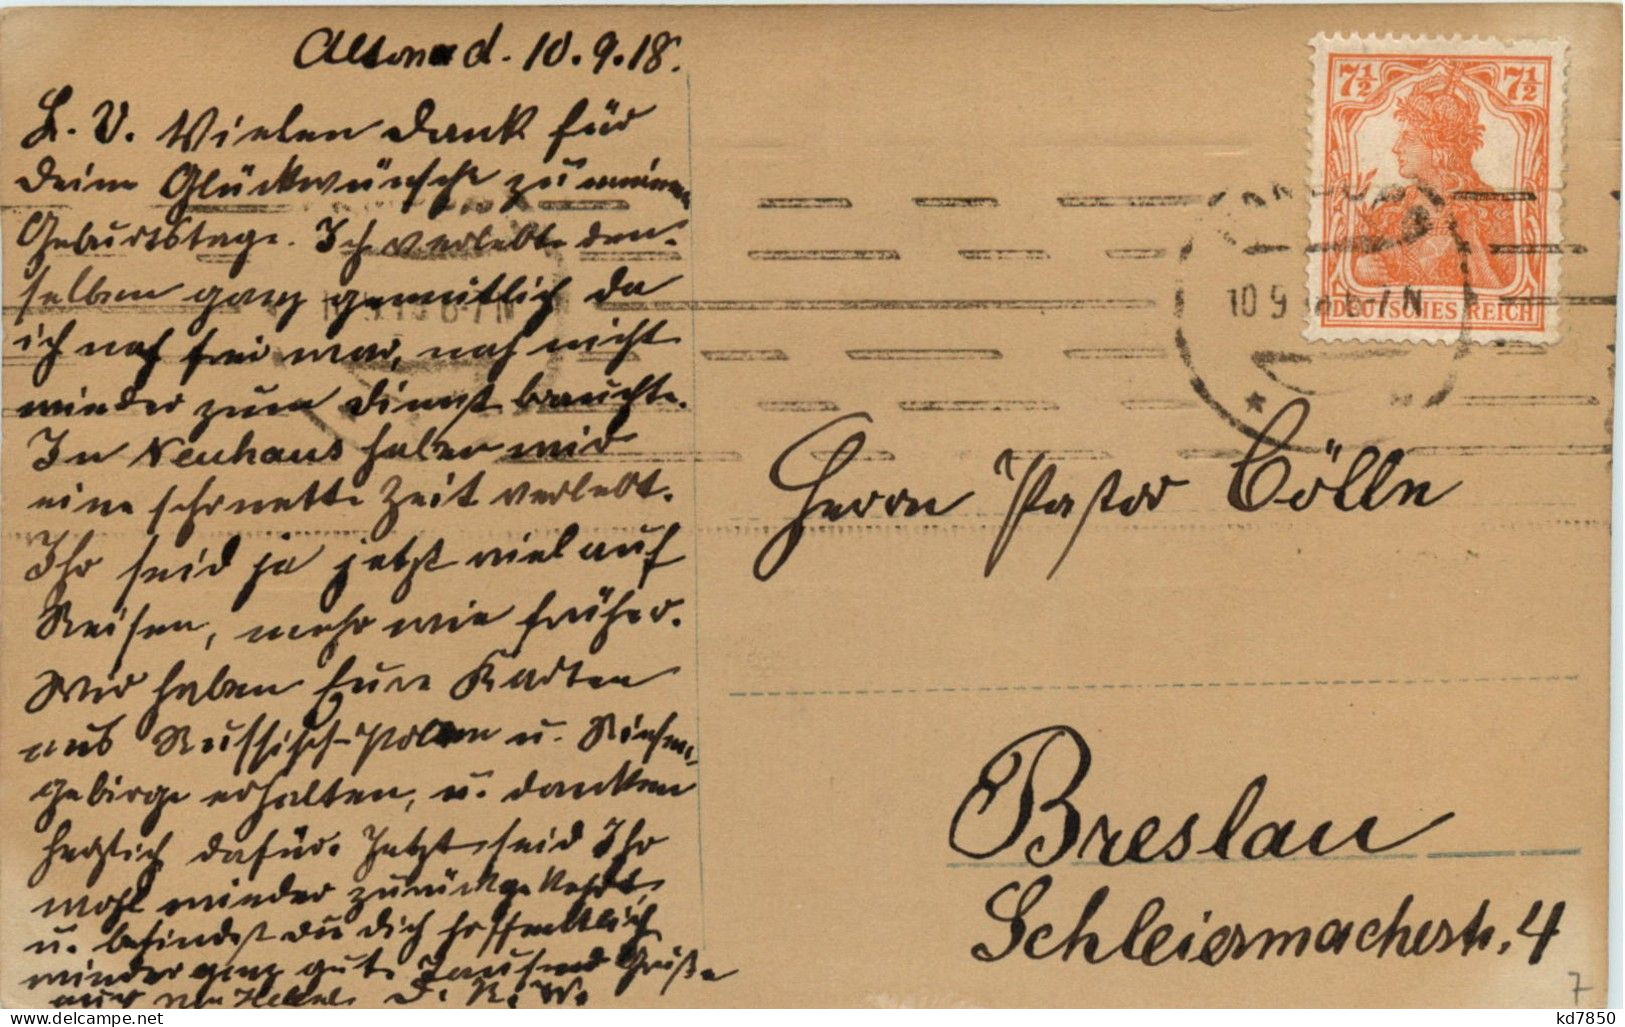 Altona d. 10.9.18.
L. V. Vielen Dank für
Deine Glückwünsche zu meinem
Geburtstage. Ich verlebte den-
selben ganz gemütlich da
ich noch frei war, noch nicht
wieder zum Dienst brauchte.
In Neuhaus haben wir
eine sehr nette Zeit verlebt.
Ihr seid ja jetzt viel auf
Reisen, mehr wie früher.
Wir haben Eure Karten
aus Russisch-Polen u. Riesen-
gebirge erhalten, u. danken
herzlich dafür. Jetzt seid Ihr
wohl wieder zurückgekehrt,
u. befindest du dich hoffentlich
wieder ganz gut. Tausend Grüße
D. R. W.
7½ 7½
DEUTSCHES REICH
10 9 18 6-7 N
Herrn Pastor Cölle
Breslau
Schleiermacherstr. 4
7
kd7850